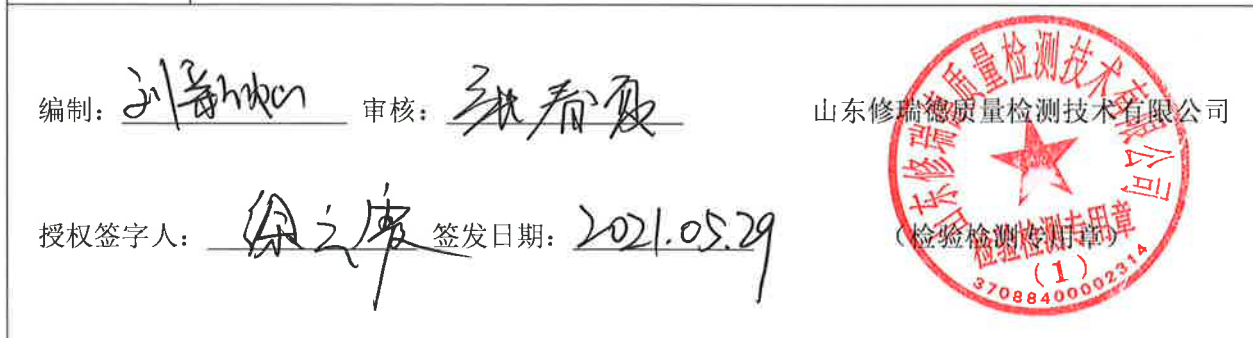 编制: 刘 审核: 张春夏
山东修瑞德质量检测技术有限公司
授权签字人: 徐之 签发日期: 2021.05.29
(检验检测专用章)
山东修瑞德质量检测技术有限公司
检验检测专用章
(1)
37088400002314